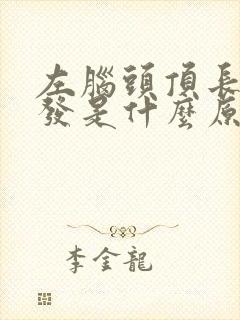 左腦頭頂長
發是什麼原
李金龍